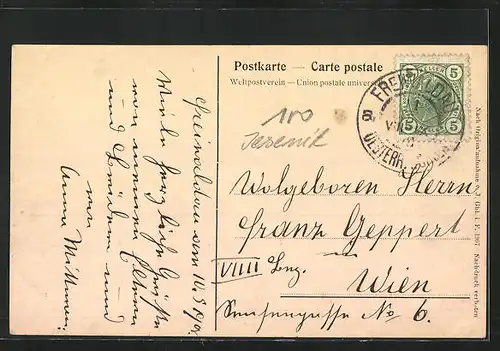 Postkarte — Carte postale
Weltpostverein — Union postale universelle
5 5
8 FREIWALDAU
OESTERR.
100
Jesenik
Wolgeboren Herrn
Franz Geppert
VIII Bez.
Wien
No 6.
Freiwaldau am 10.
Viele herzliche Grüße
von meinen Eltern
und Brüdern und
von
Anna
Nach Originalaufnahme v. J. Gbl. i. F. 1907. Nachdruck verboten